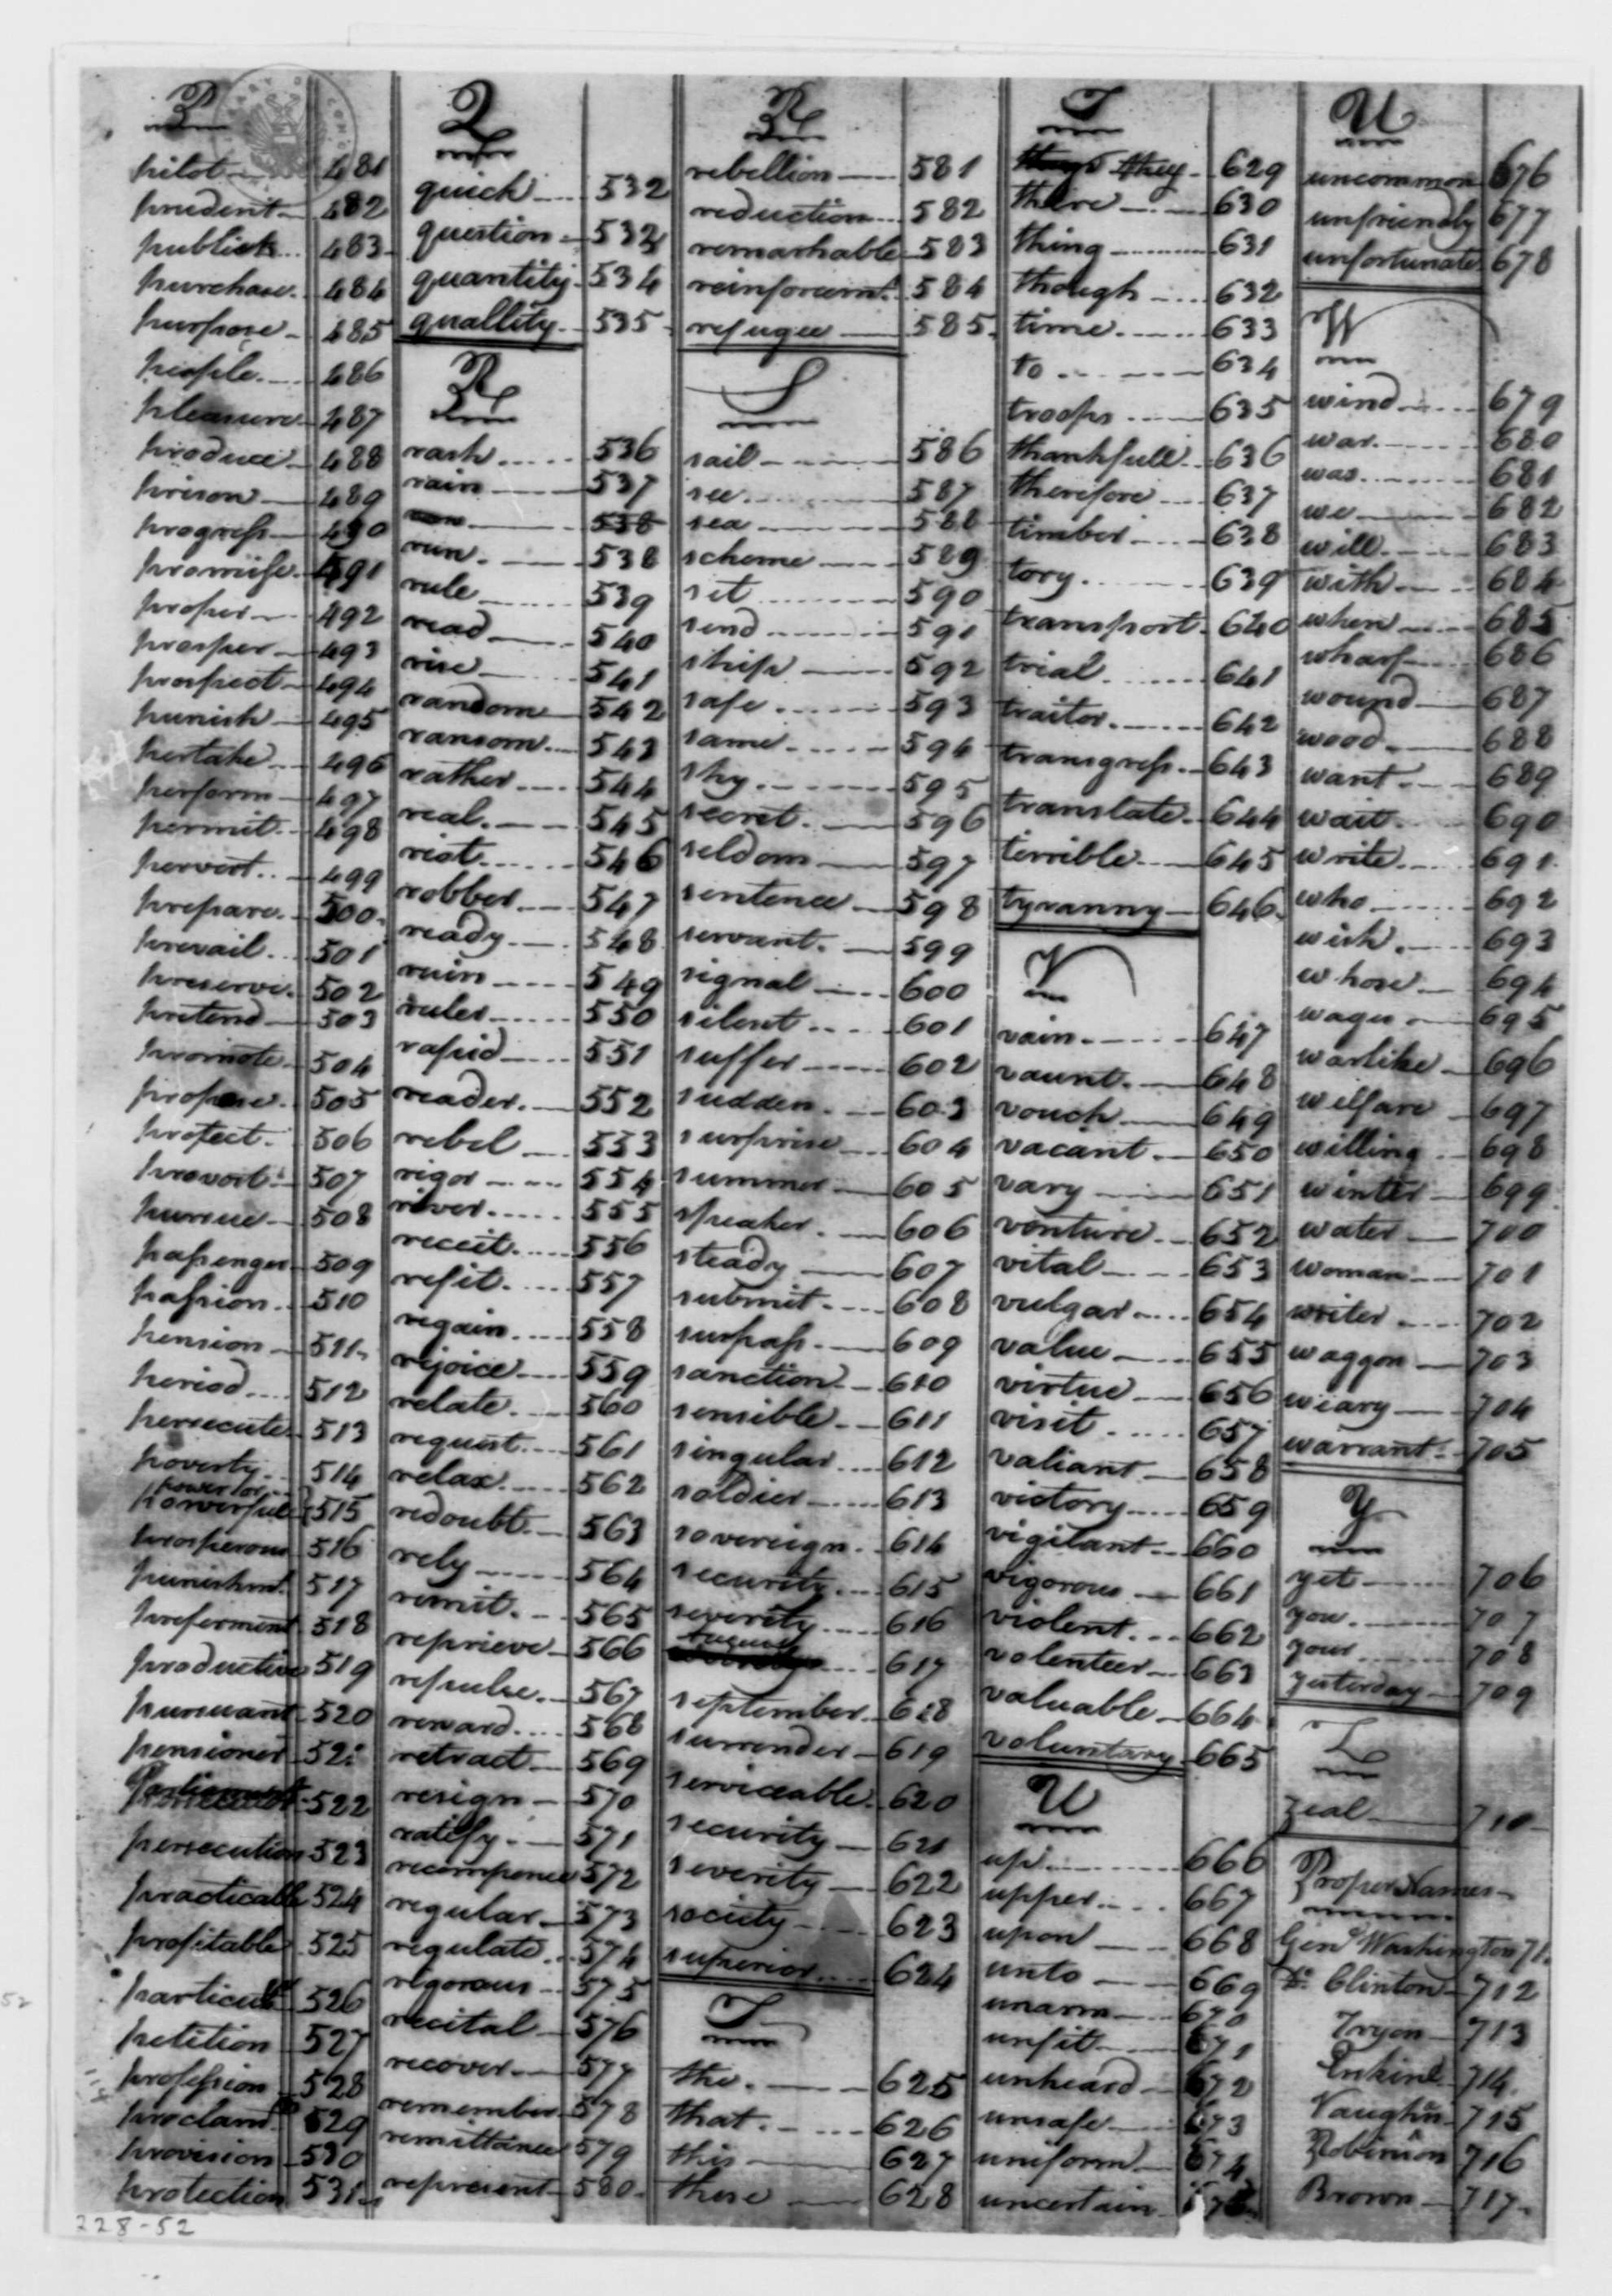 P
pilot 481
prudent 482
publick 483
purchase 484
purpose 485
people 486
pleasure 487
produce 488
prison 489
progress 490
promise 491
proper 492
prosper 493
prospect 494
punish 495
pertake 496
perform 497
permit 498
pervert 499
prepare 500
prevail 501
preserve 502
pretend 503
promote 504
propose 505
protect 506
provort 507
pursue 508
passenger 509
passion 510
pension 511
period 512
persecute 513
poverty 514
power or
powerfull 515
prosperous 516
punishmt 517
preferment 518
productive 519
pursuant 520
pensioner 521
Parliament 522
persecution 523
practicable 524
profitable 525
particular 526
petition 527
profession 528
proclam 529
provision 530
protection 531
Q
quick 532
question 533
quantity 534
quallity 535
R
rash 536
rain 537
538
run 538
rule 539
read 540
rise 541
random 542
ransom 543
rather 544
real 545
riot 546
robber 547
ready 548
ruin 549
ruler 550
rapid 551
reader 552
rebel 553
rigor 554
river 555
receit 556
refit 557
regain 558
rejoice 559
relate 560
request 561
relax 562
redoubt 563
rely 564
remit 565
reprieve 566
repulse 567
reward 568
retract 569
resign 570
ratify 571
recompence 572
regular 573
regulate 574
rigorous 575
recital 576
recover 577
remember 578
remittance 579
represent 580
R
rebellion 581
reduction 582
remarkable 583
reinforcemt 584
refugee 585
S
sail 586
see 587
sea 588
scheme 589
set 590
send 591
ship 592
safe 593
same 594
sky 595
secret 596
seldom 597
sentence 598
servant 599
signal 600
silent 601
suffer 602
sudden 603
surprise 604
summer 605
speaker 606
steady 607
submit 608
surpass 609
sanction 610
sensible 611
singular 612
soldier 613
sovereign 614
security 615
severity 616
617
september 618
surrender 619
serviceable 620
security 621
severity 622
society 623
superior 624
T
the 625
that 626
this 627
these 628
T
they 629
there 630
thing 631
though 632
time 633
to 634
troops 635
thankfull 636
therefore 637
timber 638
tory 639
transport 640
trial 641
traitor 642
transgress 643
translate 644
terrible 645
tyranny 646
V
vain 647
vaunt 648
vouch 649
vacant 650
vary 651
venture 652
vital 653
vulgar 654
value 655
virtue 656
visit 657
valiant 658
victory 659
vigilant 660
vigorous 661
violent 662
volenteer 663
valuable 664
voluntary 665
U
up 666
upper 667
upon 668
unto 669
unarm 670
unfit 671
unheard 672
unsafe 673
uniform 674
uncertain 675
U
uncommon 676
unfriendly 677
unfortunate 678
W
wind 679
war 680
was 681
we 682
will 683
with 684
when 685
wharf 686
wound 687
wood 688
want 689
wait 690
write 691
who 692
wish 693
whose 694
wages 695
warlike 696
welfare 697
willing 698
winter 699
water 700
woman 701
writer 702
waggon 703
weary 704
warrant 705
Y
yet 706
you 707
your 708
yesterday 709
Z
zeal 710
Proper Names
Genl Washington 711
Do Clinton 712
Tryon 713
Erskine 714
Vaughn 715
Robinson 716
Brown 717
228-52